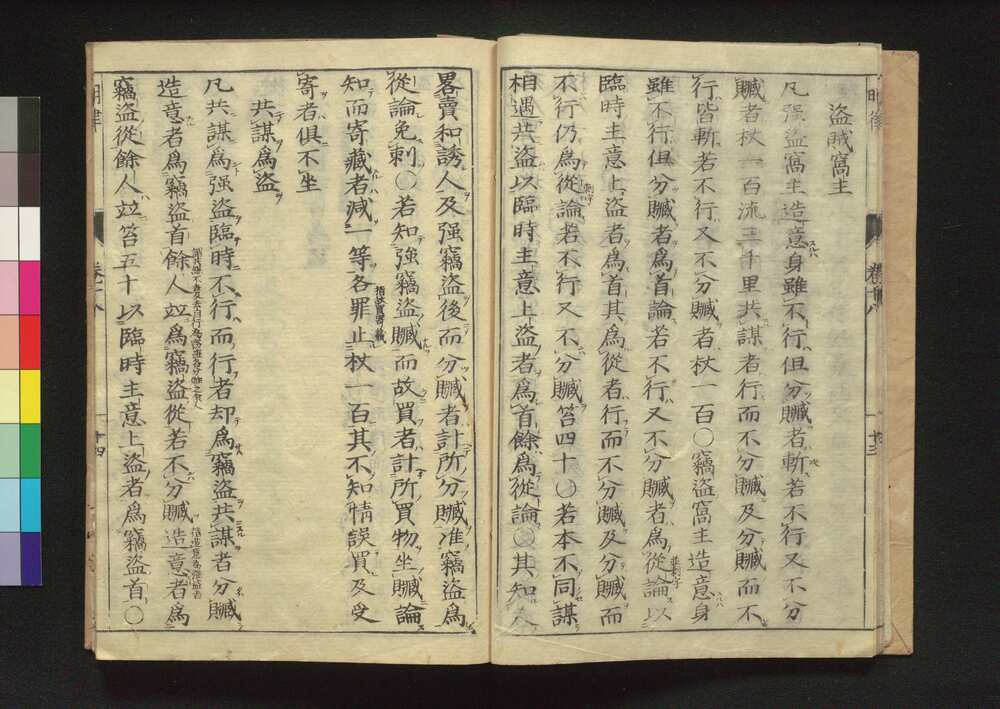 明律
卷十八
十三
盜賊窩主
凡强盜窩主造意身雖不行但分贓者斬若不行又不分
贓者杖一百流三千里共謀者行而不分贓及分贓而不
行皆斬若不行又不分贓者杖一百〇竊盜窩主造意身
雖不行但分贓者爲首論若不行又不分贓者爲從論以
臨時主意上盜者爲首其爲從者行而不分贓及分贓而
不行仍爲從論若不行又不分贓笞四十〇若本不同謀
相遇共盜以臨時主意上盜者爲首餘爲從論〇其知人
畧賣和誘人及强竊盜後而分贓者計所分贓准竊盜爲
從論免刺〇若知强竊盜贓而故買者計所買物坐贓論
知而寄藏者減一等各罪止杖一百其不知情誤買及受
指故買寄藏
寄者俱不坐
共謀爲盜
凡共謀爲强盜臨時不行而行者却爲竊盜共謀者分贓
造意者爲竊盜首餘人竝爲竊盜從若不分贓造意者爲
竊盜從餘人竝笞五十以臨時主意上盜者爲竊盜首〇
明律
卷十八
十四